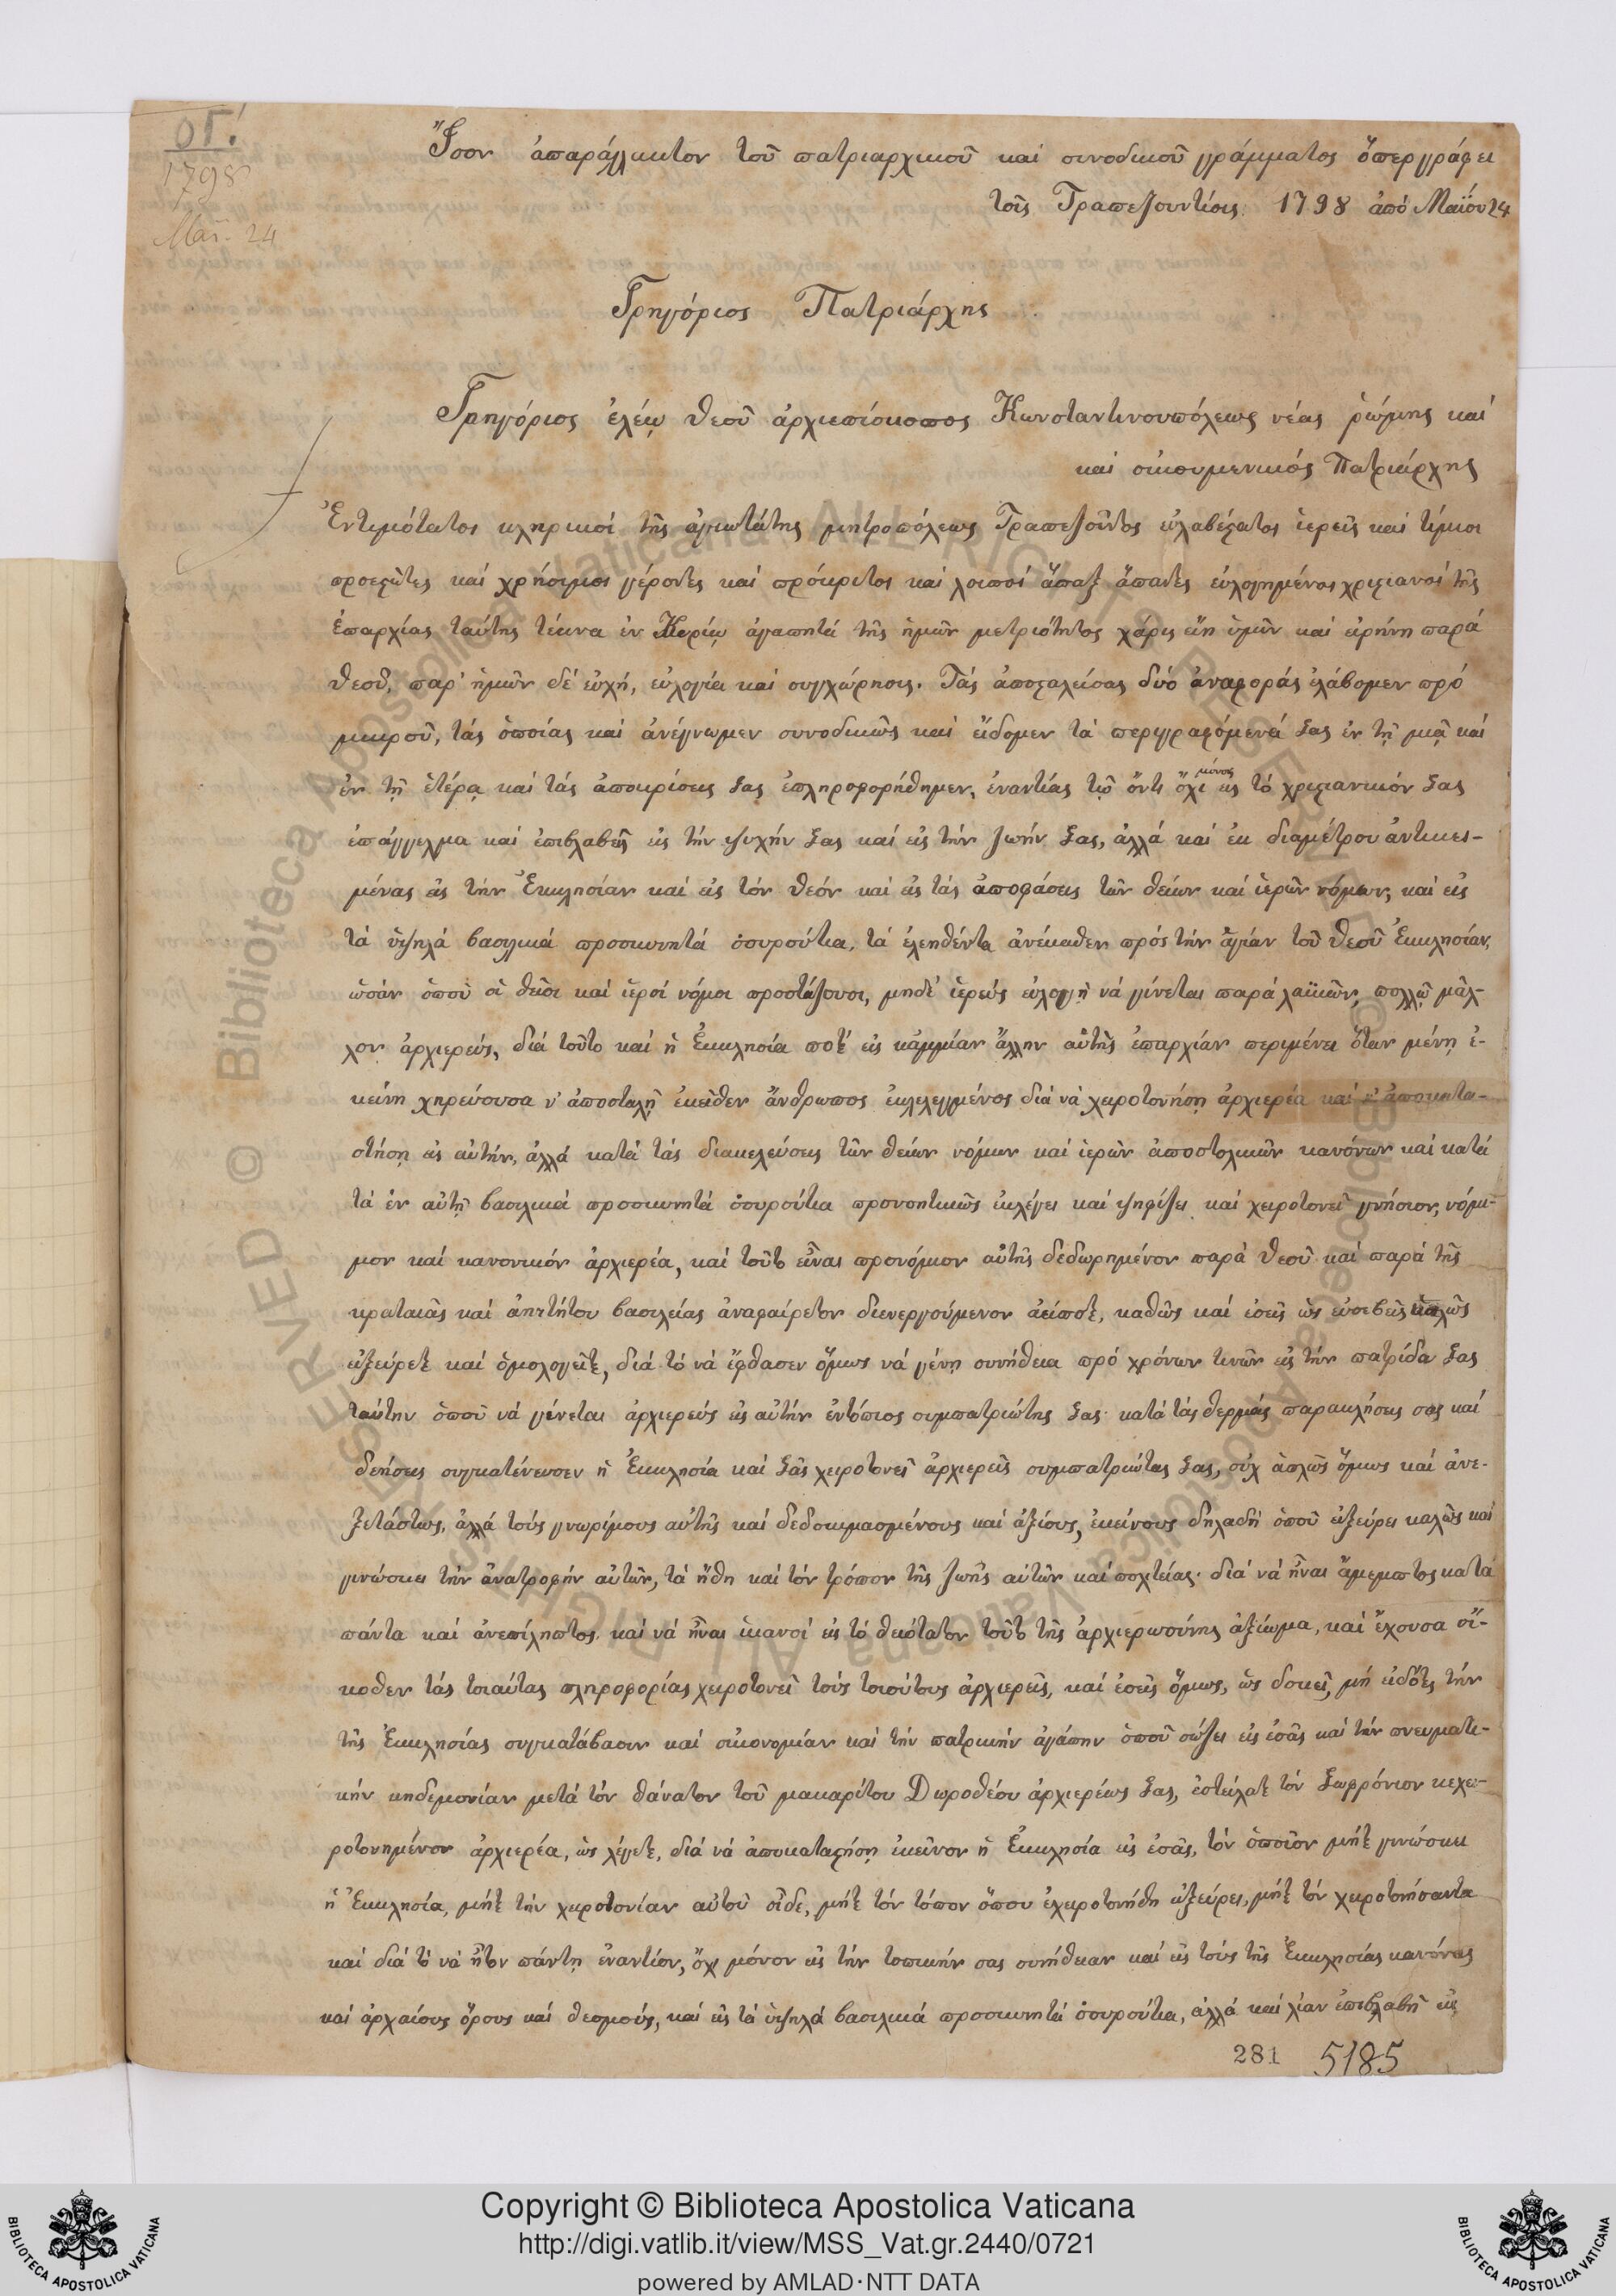 ΟΓ΄.
1798
Μαΐ. 24
Ἴσον ἀπαράλλακτον τοῦ πατριαρχικοῦ καί συνοδικοῦ γράμματος ὅπερ γράφει
τοῖς Τραπεζουντίοις 1798 ἀπό Μαΐου 24
Γρηγόριος Πατριάρχης
Γρηγόριος ἐλέῳ θεοῦ ἀρχιεπίσκοπος Κωνσταντινουπόλεως νέας ῥώμης καί
καί οἰκουμενικός Πατριάρχης
Ἐντιμότατοι κληρικοί τῆς ἁγιωτάτης μητροπόλεως Τραπεζοῦντος εὐλαβέστατοι ἱερεῖς καί τίμιοι
προεστῶτες καί χρήσιμοι γέροντες καί πρόκριτοι καί λοιποί ἅπαξ ἅπαντες εὐλογημένοι χριστιανοί τῆς
ἐπαρχίας ταύτης τέκνα ἐν Κυρίῳ ἀγαπητά τῆς ἡμῶν μετριότητος χάρις εἴη ὑμῖν καί εἰρήνη παρά
θεοῦ, παρ' ἡμῶν δέ εὐχή, εὐλογία καί συγχώρησις. Τάς ἀποσταλείσας δύο ἀναφοράς ἐλάβομεν πρό
μικροῦ, τάς ὁποίας καί ἀνέγνωμεν συνοδικῶς καί εἴδομεν τά περιγραφόμενά σας ἐν τῇ μιᾷ καί
ἐν τῇ ἑτέρᾳ καί τάς ἀποκρίσεις σας ἐπληροφορήθημεν, ἐναντίας τῷ ὄντι ὄχι μόνον εἰς τό χριστιανικόν σας
ἐπάγγελμα καί ἐπιβλαβεῖς εἰς τήν ψυχήν σας καί εἰς τήν ζωήν σας, ἀλλά καί ἐκ διαμέτρου ἀντικει-
μένας εἰς τήν Ἐκκλησίαν καί εἰς τόν θεόν καί εἰς τάς ἀποφάσεις τῶν θείων καί ἱερῶν νόμων, καί εἰς
τά ὑψηλά βασιλικά προσκυνητά ὁσουρούτια, τά ἐλεηθέντα ἀνέκαθεν πρός τήν ἁγίαν τοῦ θεοῦ Ἐκκλησίαν,
ὡσάν ὁποῦ οἱ θεῖοι καί ἱεροί νόμοι προστάζουσι, μηδ' ἱερεύς εὐλογῇ νά γίνεται παρά λαϊκῶν, πολλῷ μᾶλ-
λον ἀρχιερεύς, διά τοῦτο καί ἡ Ἐκκλησία ποτέ εἰς κᾀμμίαν ἄλλην αὐτῆς ἐπαρχίαν περιμένει ὅταν μένῃ ἐ-
κείνη χηρεύουσα ν' ἀποσταλῇ ἐκεῖθεν ἄνθρωπος ἐκλελεγμένος διά νά χειροτονήσῃ ἀρχιερέα καί ν' ἀποκατα-
στήσῃ εἰς αὐτήν, ἀλλά κατά τάς διακελεύσεις τῶν θείων νόμων καί ἱερῶν ἀποστολικῶν κανόνων καί κατά
τά ἐν αὐτῇ βασιλικά προσκυνητά ὁσουρούτια προνοητικῶς ἐκλέγει καί ψηφίζει καί χειροτονεῖ γνήσιον, νόμι-
μον καί κανονικόν ἀρχιερέα, καί τοῦτο εἶναι προνόμιον αὐτῆς δεδωρημένον παρά θεοῦ καί παρά τῆς
κραταιᾶς καί ἀηττήτου βασιλείας ἀναφαίρετον διενεργούμενον ἀείποτε, καθώς καί ἐσεῖς ὡς εὐσεβεῖς καλῶς
ἐξεύρετε καί ὁμολογεῖτε, διά τό νά ἔφθασεν ὅμως νά γένῃ συνήθεια πρό χρόνων τινῶν εἰς τήν πατρίδα σας
ταύτην ὁποῦ νά γένεται ἀρχιερεύς εἰς αὐτήν ἐντόπιος συμπατριώτης σας κατά τάς θερμάς παρακλήσεις σας καί
δεήσεις συγκατένευσεν ἡ Ἐκκλησία καί σᾶς χειροτονεῖ ἀρχιερεῖς συμπατριώτας σας, οὐχ ἁπλῶς ὅμως καί ἀνε-
ξετάστως, ἀλλά τούς γνωρίμους αὐτῆς καί δεδοκιμασμένους καί ἀξίους, ἐκείνους δηλαδή ὁποῦ ἐξεύρει καλῶς καί
γινώσκει τήν ἀνατροφήν αὐτῶν, τά ἤθη καί τόν τρόπον τῆς ζωῆς αὐτῶν καί πολιτείας· διά νά ἦναι ἄμεμπτος κατά
πάντα καί ἀνεπίληπτος καί νά ἦναι ἱκανοί εἰς τό θειότατον τοῦτο τῆς ἀρχιερωσύνης ἀξίωμα, καί ἔχουσα οἴ-
κοθεν τάς τοιαύτας πληροφορίας χειροτονεῖ τούς τοιούτους ἀρχιερεῖς, καί ἐσεῖς ὅμως, ὡς δοκεῖ, μή εἰδότες τήν
τῆς Ἐκκλησίας συγκατάβασιν καί οἰκονομίαν καί τήν πατρικήν ἀγάπην ὁποῦ σώζει εἰς ἐσᾶς καί τήν πνευματι-
κήν κηδεμονίαν μετά τόν θάνατον τοῦ μακαρίτου Δωροθέου ἀρχιερέως σας, ἐστείλατε τόν Σωφρόνιον κεχει-
ροτονημένον ἀρχιερέα, ὡς λέγετε, διά νά ἀποκαταστήσῃ ἐκεῖνον ἡ Ἐκκλησία εἰς ἐσᾶς, τόν ὁποῖον μήτε γινώσκει
ἡ Ἐκκλησία, μήτε τήν χειροτονίαν αὐτοῦ οἶδε, μήτε τόν τόπον ὅπου ἐχειροτονήθη ἐξεύρει, μήτε τόν χειροτονήσαντα
καί διά τό νά ἦτον πάντῃ ἐναντίον, ὄχι μόνον εἰς τήν τοπικήν σας συνήθειαν καί εἰς τούς τῆς Ἐκκλησίας κανόνας
καί ἀρχαίους ὅρους καί θεσμούς, καί εἰς τά ὑψηλά βασιλικά προσκυνητά ὁσουρούτια, ἀλλά καί λίαν ἐπιβλαβῆ εἰς
281 5185
Copyright © Biblioteca Apostolica Vaticana
http://digi.vatlib.it/view/MSS_Vat.gr.2440/0721
powered by AMLAD·NTT DATA
BIBLIOTECA APOSTOLICA VATICANA
BIBLIOTECA APOSTOLICA VATICANA